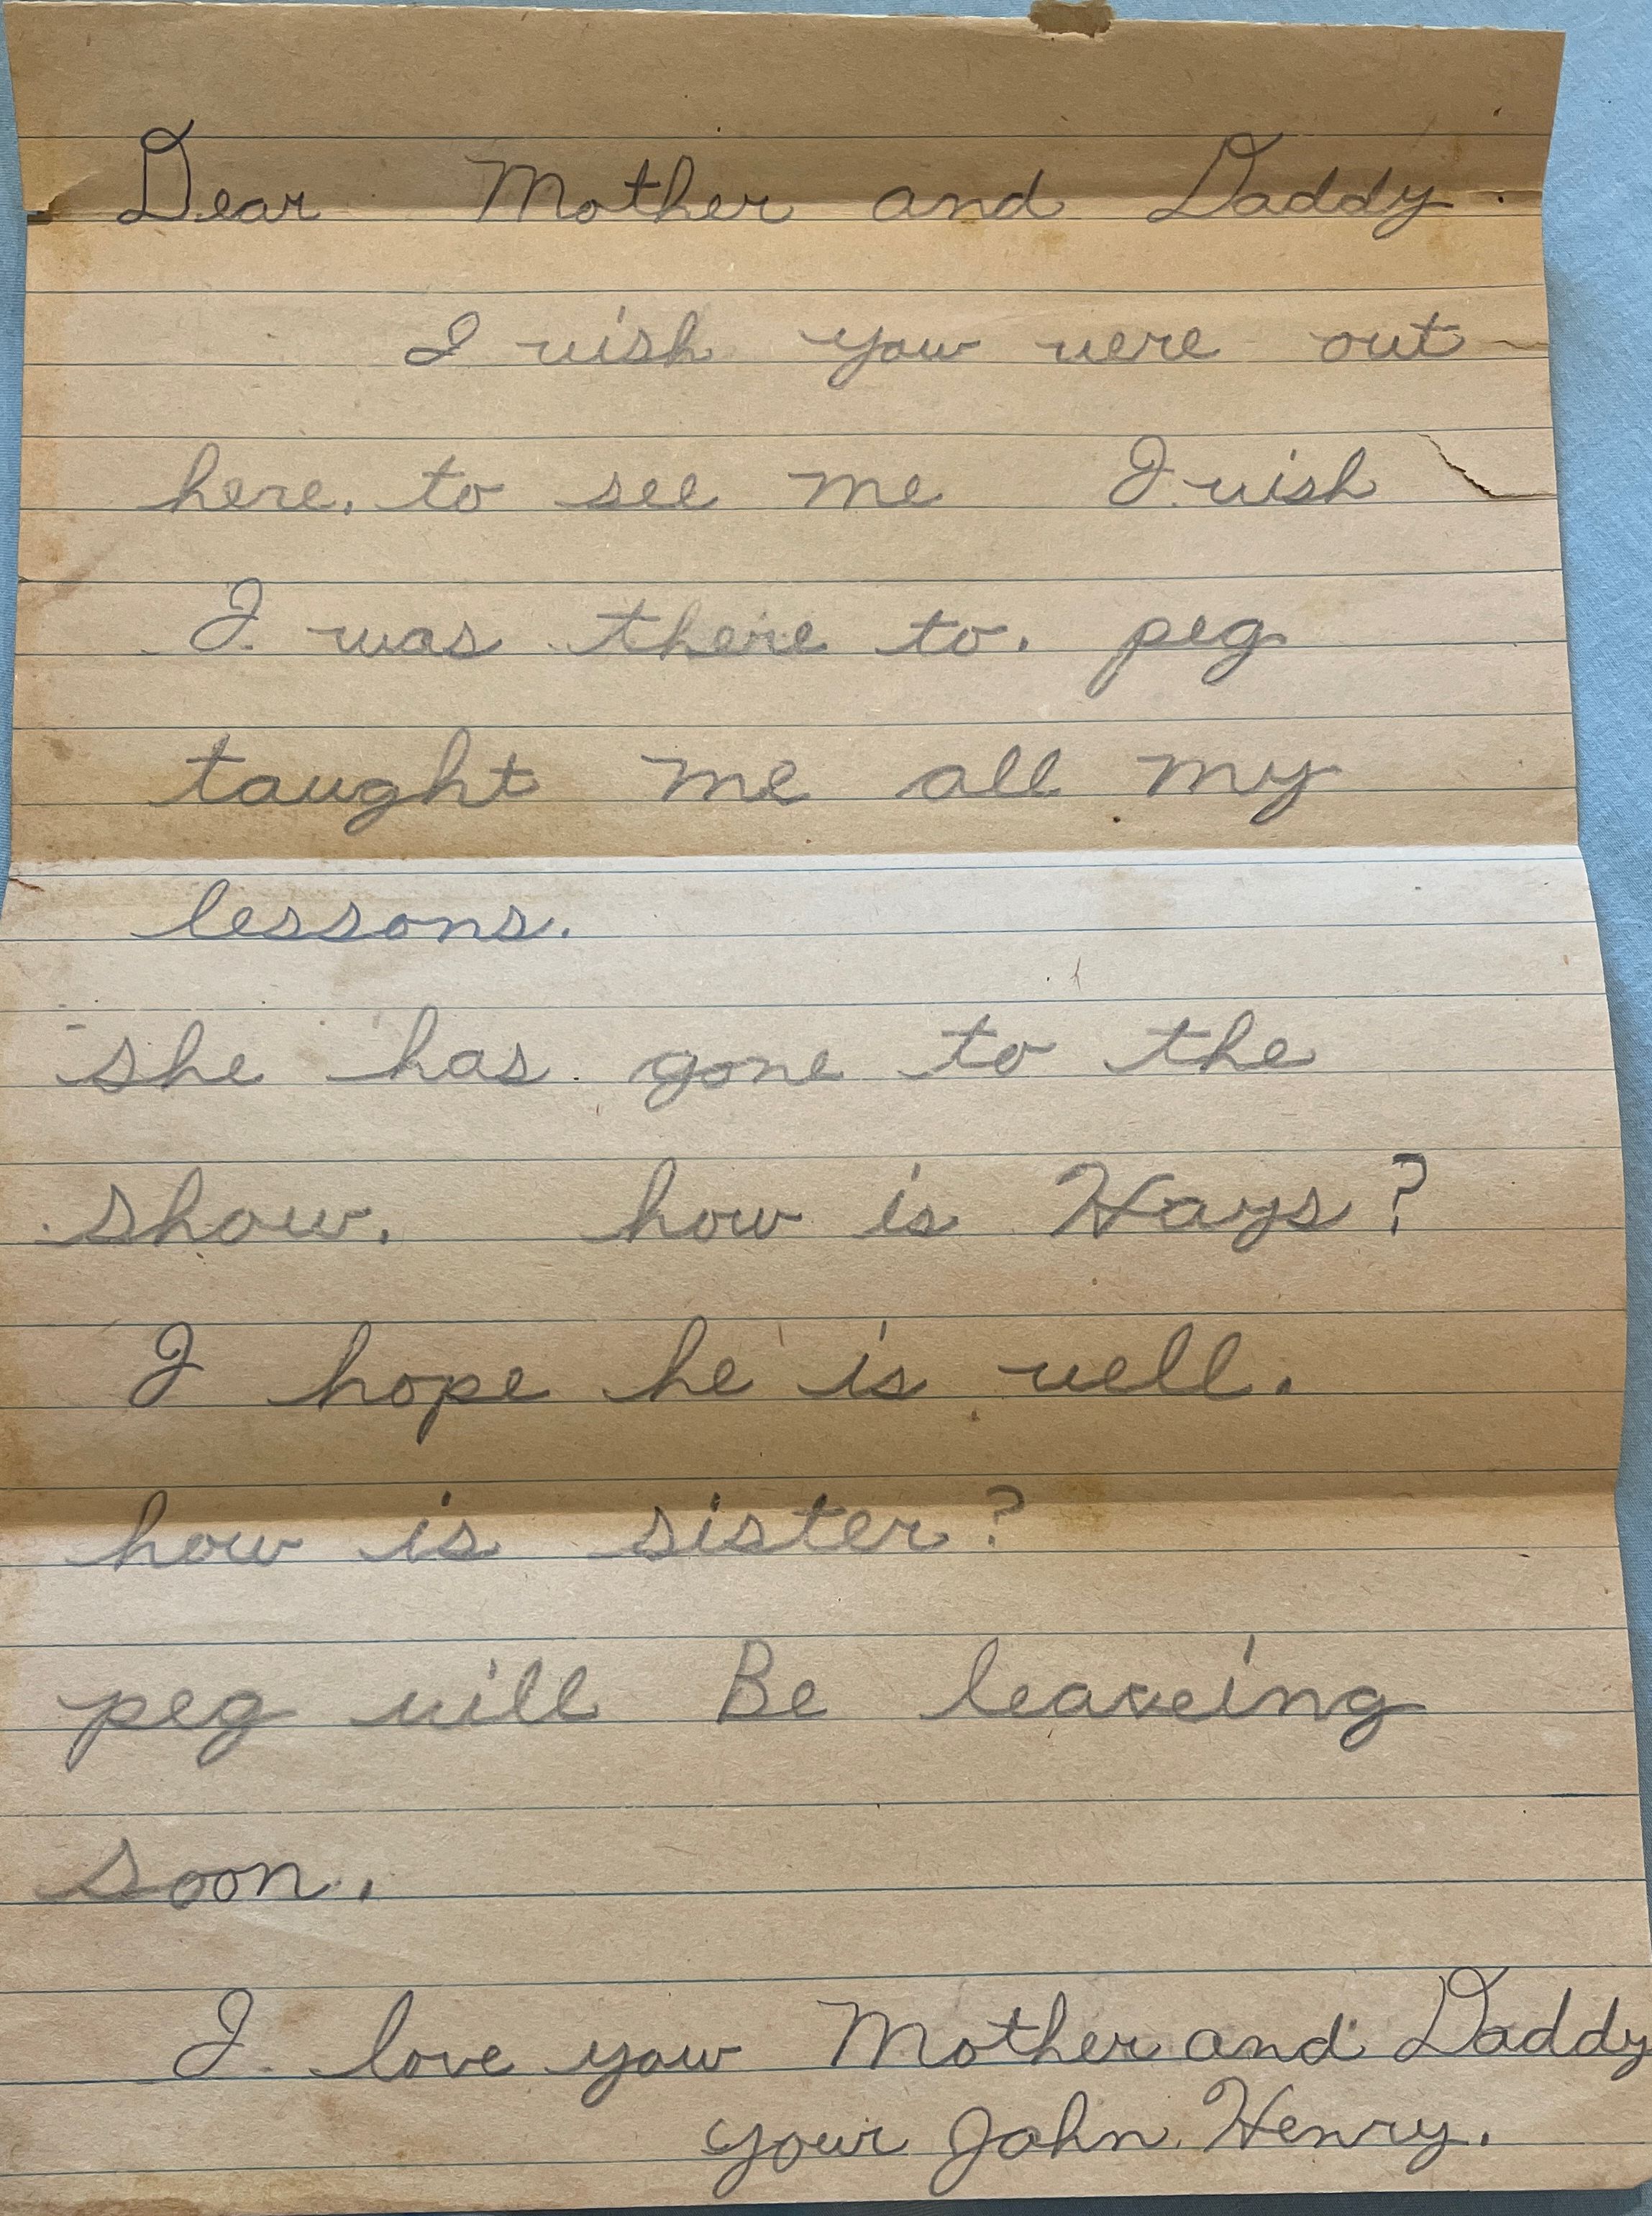 Dear Mother and Daddy.
I wish you were out
here. to see me I wish
I was there to. peg
taught me all my
lessons.
she has gone to the
show. how is Hays?
I hope he is well.
how is sister?
peg will Be leaveing
soon.
I love you Mother and Daddy
your John Henry.